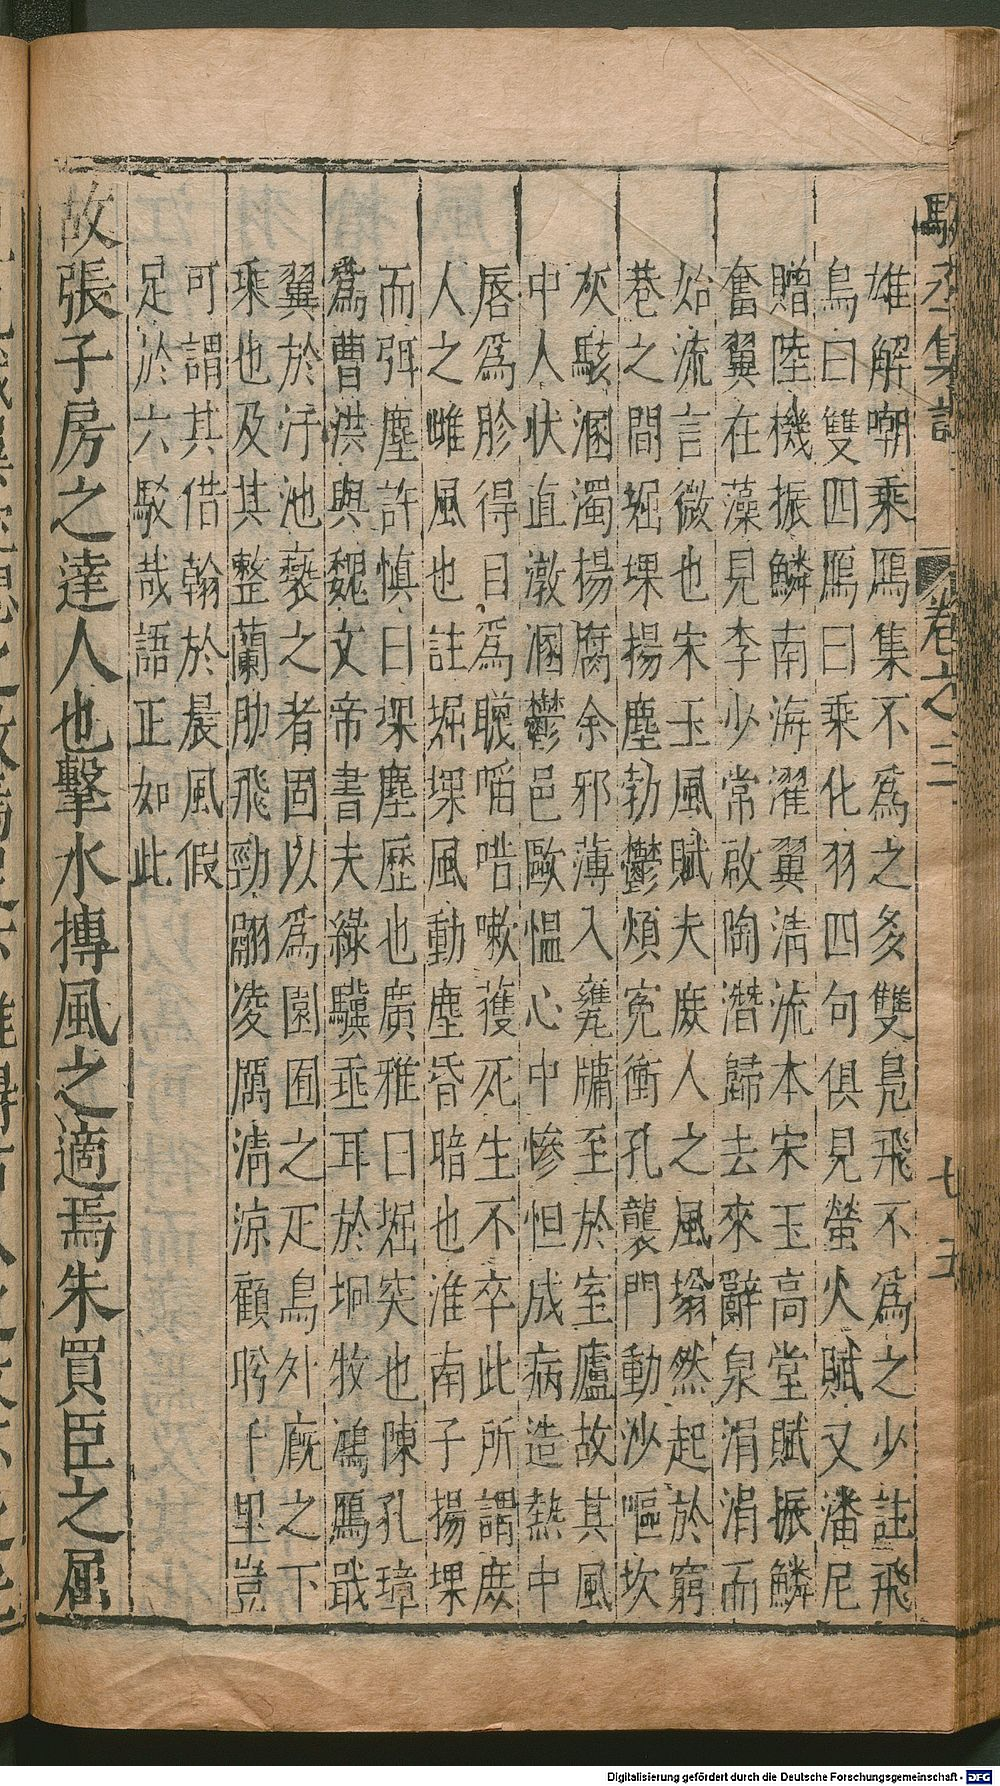 雄解嘲乘鴈集不為之多雙鳧飛不為之少註飛
鳥曰雙四鴈曰乘化羽四句俱見螢火賦又潘尼
贈陸機振鱗南海濯翼清流本宋玉高堂賦振鱗
奮翼在藻見李少常啟陶潛歸去來辭泉涓涓而
始流言微也宋玉風賦夫庻人之風塕然起於窮
巷之間堀堁揚塵勃鬱煩冤衝孔襲門動沙堁
灰駭溷濁揚腐余邪薄入甕牖至於室廬故其風
中人狀直憞溷鬱邑毆慍心中慘怛成病造熱中
唇為胗得目為𥉻啗嗽獲死生不卒此所謂庻
人之雌風也註堀堁風動塵昏暗也淮南子揚堁
而弭塵許慎曰堁塵歷也廣雅曰堀突也陳孔璋
為曹洪與魏文帝書夫綠驥垂耳於坰牧鴻鴈戢
翼於汙池䙝之者固以為園囿之疋鳥外廐之下
乘也及其整蘭肋飛勁翮凌厲清涼顧盻千里豈
可謂其借翰於晨風假
足於六駁哉語正如此
故張子房之達人也擊水摶風之適焉朱買臣之屈
卷之三
七五
Digitalisierung gefördert durch die Deutsche Forschungsgemeinschaft - DFG